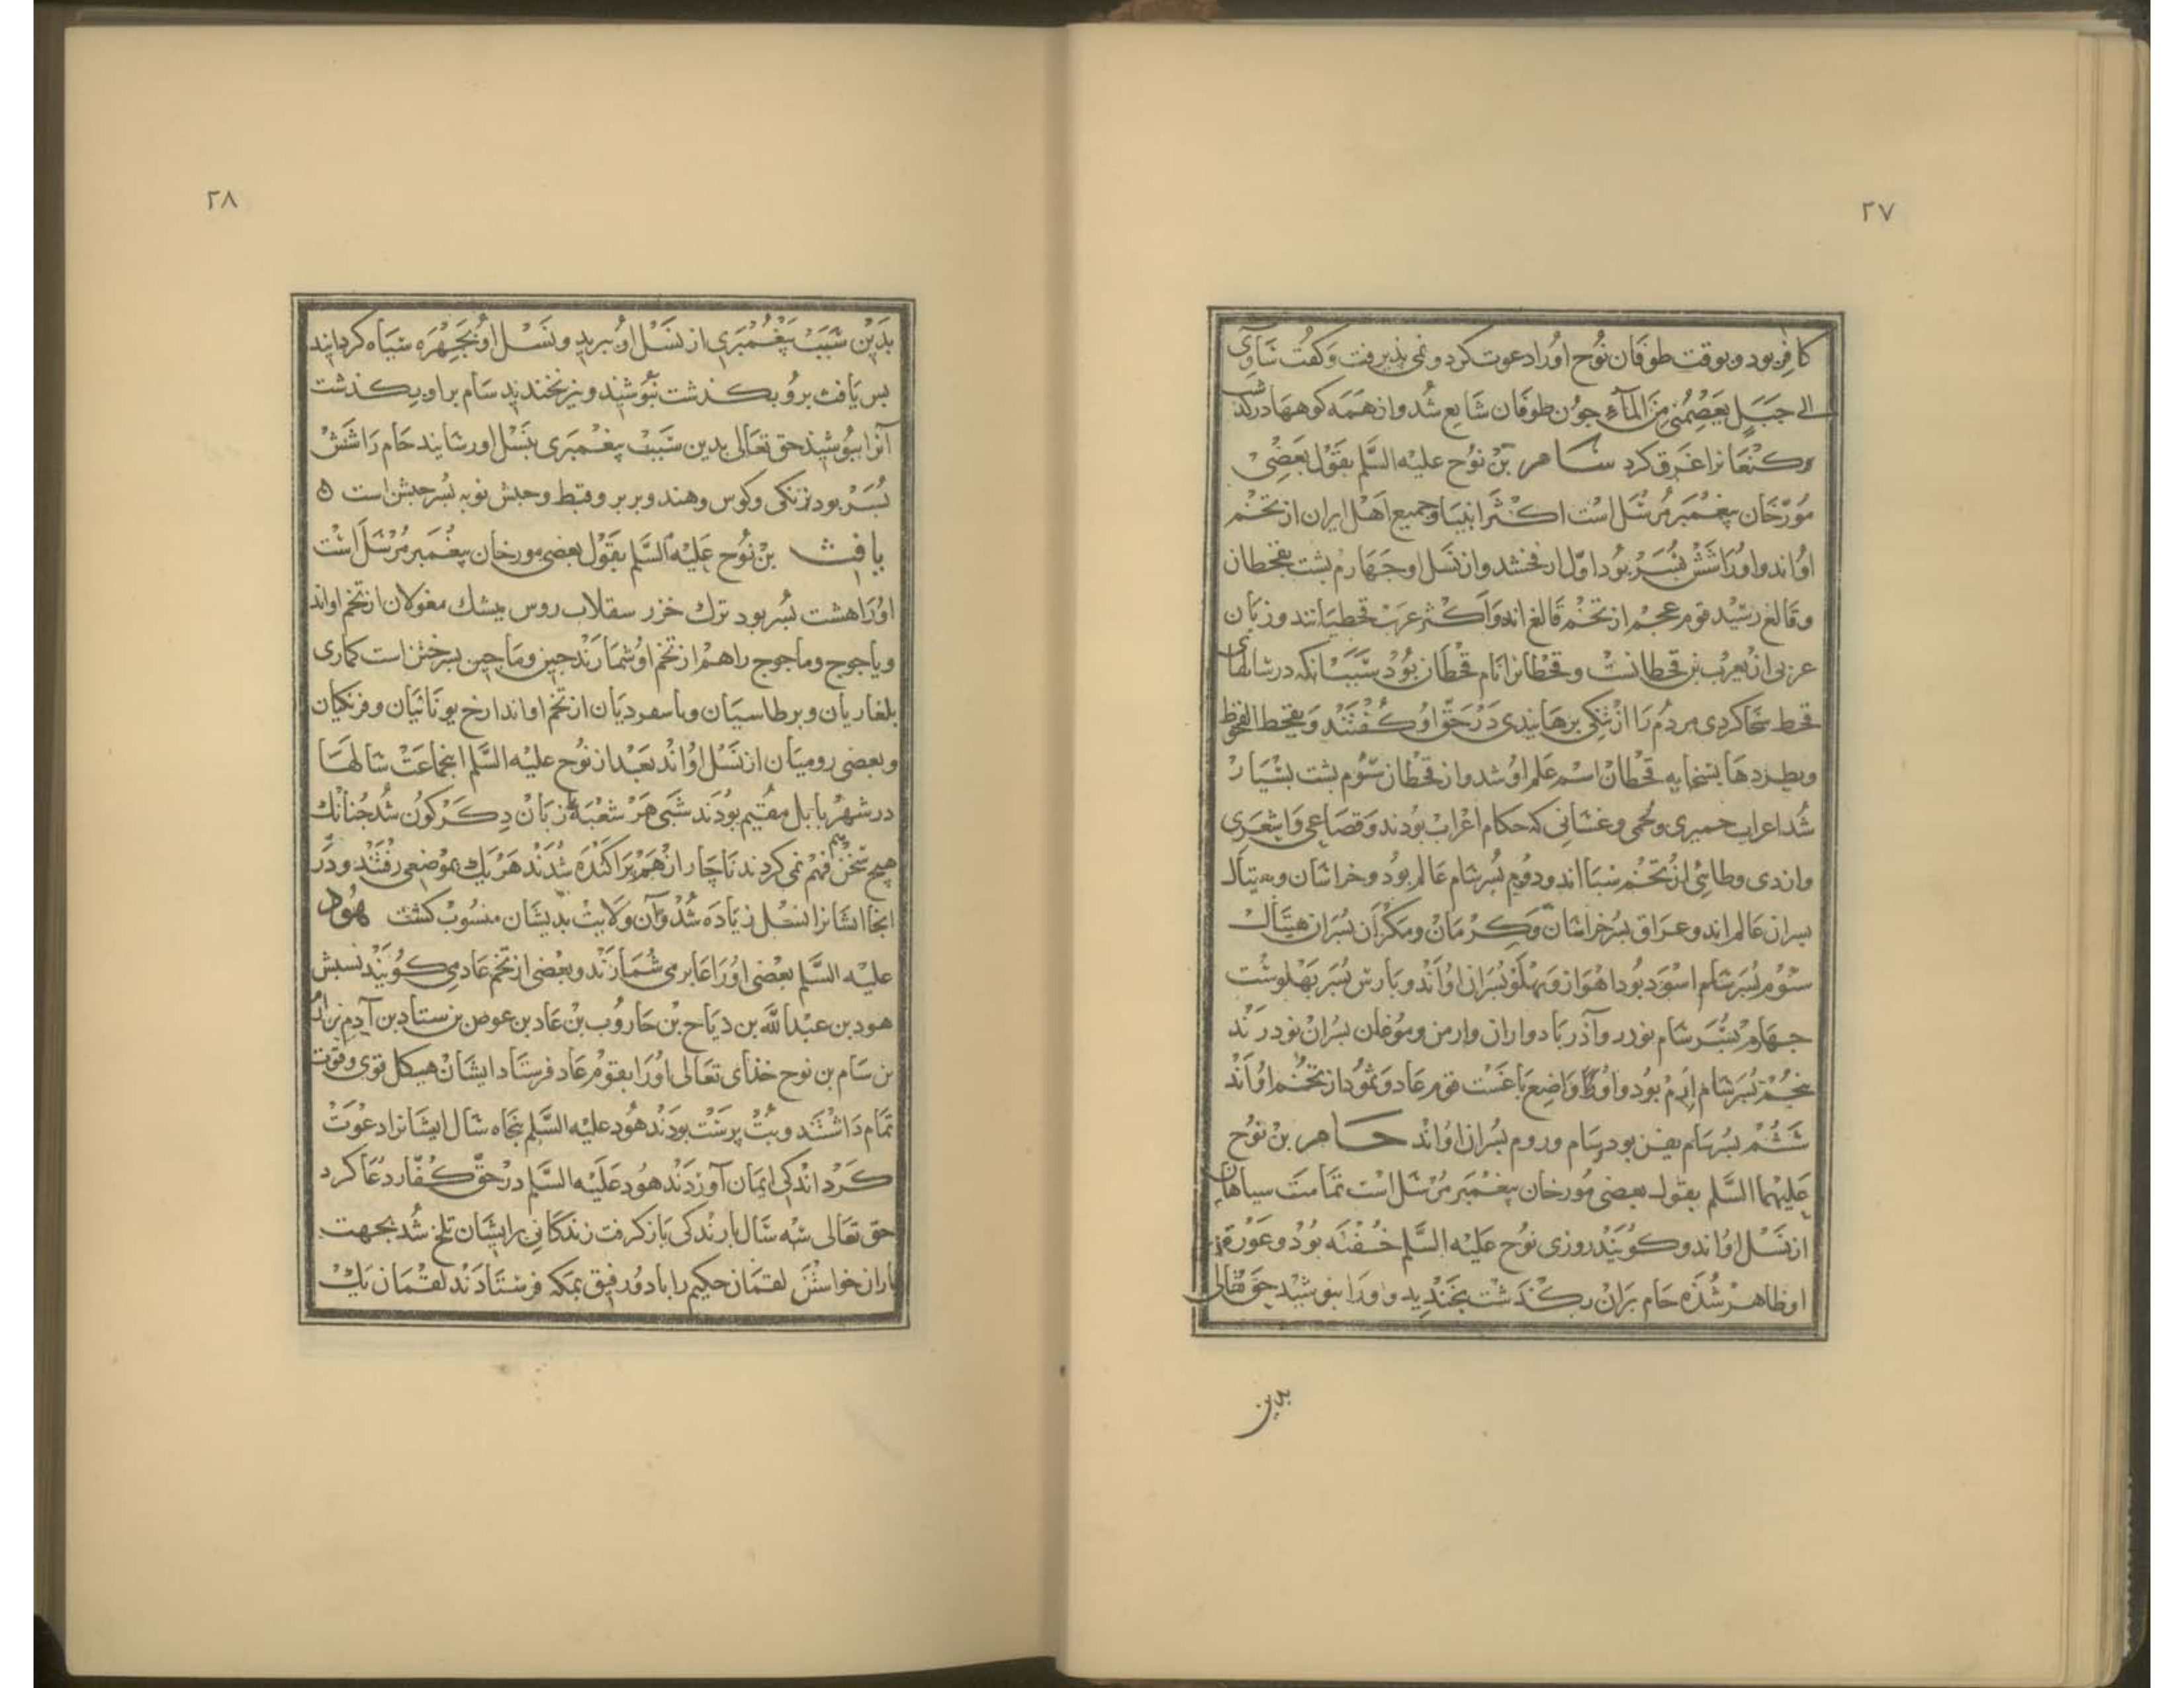 ٢٧
كافر بود و بوقت طوفان نوح اورا دعوت كرد و نمی پذیرفت و كفت سآوی
الی جبل یعصمنی من المآء چون طوفان شایع شد و از همه كوهها در كذشت
و كنعانرا غرق كرد سام بن نوح علیه السلم بقول بعضی
مورخان پیغمبر مرسل است اكثر انبیا و جمیع اهل ایران از تخم
اواند و اورا شش پسر بود اول ارفخشد و از نسل او چهارم پشت بقحطان
و قالغ رسید قوم عجم از تخم قالغ اند و اكثر عرب قحطیانند و زبان
عربی از یعرب بن قحطانست و قحطانرا نام قحطان بود سبب انكه در سالهای
قحط سخا كردی مردم را از تنكی برهانیدی در حق او كفتند و یقحط القحوط
ویطردها بسخایه قحطان اسم علم او شد و از قحطان سوم پشت بسیار
شد اعراب حمیری و لخمی و غسانی كه حكام اعراب بودند و قضاعی و اشعری
و ازدی و طائی از تخم سبا اند و دویم پسر سام عالم بود و خراسان و هیتال
پسران عالم اند و عراق پسر خراسان و كرمان و مكران پسران هیتال
سوم پسر سام اسود بود اهواز و پهلو پسران اواند و پارس پسر پهلوست
چهارم پسر سام نودر و آذرباد و اران و ارمن و موغان پسران نودرند
پنجم پسر سام ارم بود و او واضع باغست قوم عاد و ثمود از تخم اواند
ششم پسر سام یفن بود سام و روم پسران اواند حام بن نوح
علیهما السلم بقول بعضی مورخان پیغمبر مرسل است تمامت سیاهان
از نسل اواند و كویند روزی نوح علیه السلم خفته بود و عورة
او ظاهر شده حام بران بكذشت بخندید و اورا نپوشید حق تعالی
بدین
٢٨
بدین سبب پیغمبری از نسل او ببرید و نسل او بچهره سیاه كردانید
پس یافث برو بكذشت نپوشید و نیز نخندید سام بر او بكذشت
آنرا بپوشید حق تعالی بدین سبب پیغمبری بنسل او رسانید حام را شش
پسر بود زنكی و كوس و هند و بربر و قبط و حبش نوبه پسر حبش است ه
یافث بن نوح علیه السلم بقول بعضی مورخان پیغمبر مرسل است
اورا هشت پسر بود ترك خزر سقلاب روس میشك مغولان از تخم اواند
و یاجوج و ماجوج را هم از تخم او شمارند چین و ماچین پسر ختن است كماری
بلغاریان و برطاسیان و باسغردیان از تخم اواند ارخ یونانیان و فرنكیان
و بعضی رومیان از نسل اواند بعد از نوح علیه السلم اینجماعت سالها
در شهر بابل مقیم بودند شبی هر شعبه را زبان دكركون شد چنانك
هیچ سخن هم فهم نمی كردند ناچار از هم پراكنده شدند هر یك بموضعی رفتند و در
انجا ایشانرا نسل زیاده شد و آن ولایت بدیشان منسوب كشت هود
علیه السلم بعضی اورا عابر می شمارند و بعضی از تخم عاد می كویند نسبش
هود بن عبدالله بن دیاح بن حاروب بن عاد بن عوص بن ستاد بن آدم بن
بن سام بن نوح خذای تعالی اورا بقوم عاد فرستاد ایشان هیكل قوی و قوت
تمام داشتند و بت پرست بودند هود علیه السلم پنجاه سال ایشانرا دعوت
كرد اندكی ایمان آوردند هود علیه السلم در حق كفار دعا كرد
حق تعالی سه سال بارندكی باز كرفت زندكانی بر ایشان تلخ شد بجهت
باران خواستن لقمان حكیم را با دو رفیق بمكه فرستادند لقمان یك